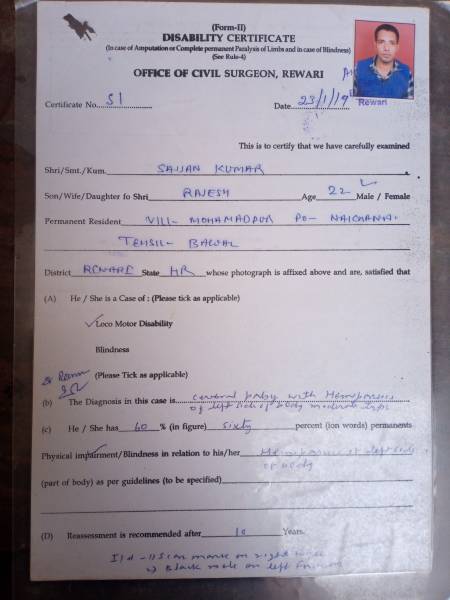 (Form-II)
DISABILITY CERTIFICATE
(In case of Amputation or Complete permanent Paralysis of Limbs and in case of Blindness)
(See Rule-4)
OFFICE OF CIVIL SURGEON, REWARI
Certificate No. 51 Date 23/1/19
Rewari
This is to certify that we have carefully examined
Shri/Smt./Kum. SAJJAN KUMAR
Son/Wife/Daughter fo Shri RAJESH Age 22 Male / Female
Permanent Resident VILL- MOHAMADPUR PO- NAICHANA
TEHSIL- BAWAL
District REWARI State HR whose photograph is affixed above and are, satisfied that
(A) He / She is a Case of : (Please tick as applicable)
Loco Motor Disability
Blindness
(Please Tick as applicable)
(b) The Diagnosis in this case is cerebral palsy with Hemiparesis
of left side of body moderate type
(c) He / She has 60 % (in figure) Sixty percent (ion words) permanents
Physical impairment/Blindness in relation to his/her Hemiparesis of left side
of body
(part of body) as per guidelines (to be specified)
(D) Reassessment is recommended after 10 Years.
Scar mark on right
2) Black mole on left